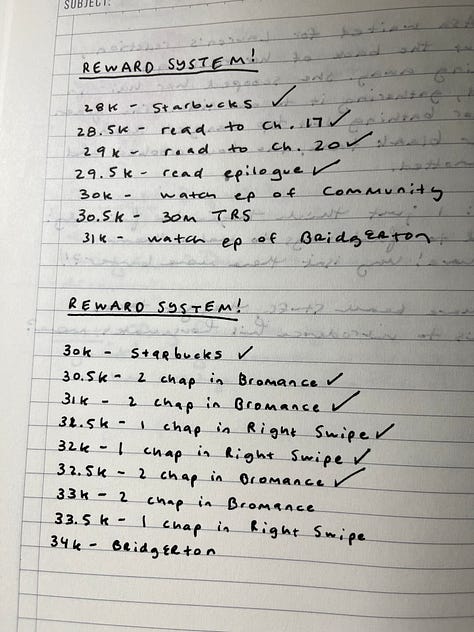 SUBJECT:
REWARD SYSTEM!
28K - Starbucks ✓
28.5K - read to Ch. 17 ✓
29K - read to Ch. 20 ✓
29.5K - read epilogue ✓
30K - watch ep of Community
30.5K - 30m TRS
31K - watch ep of Bridgerton
REWARD SYSTEM!
30K - Starbucks ✓
30.5K - 2 chap in Bromance ✓
31K - 2 chap in Bromance ✓
32.5K - 1 chap in Right Swipe ✓
32K - 1 chap in Right Swipe ✓
32.5K - 2 chap in Bromance ✓
33K - 2 chap in Bromance
33.5K - 1 chap in Right Swipe
34K - Bridgerton